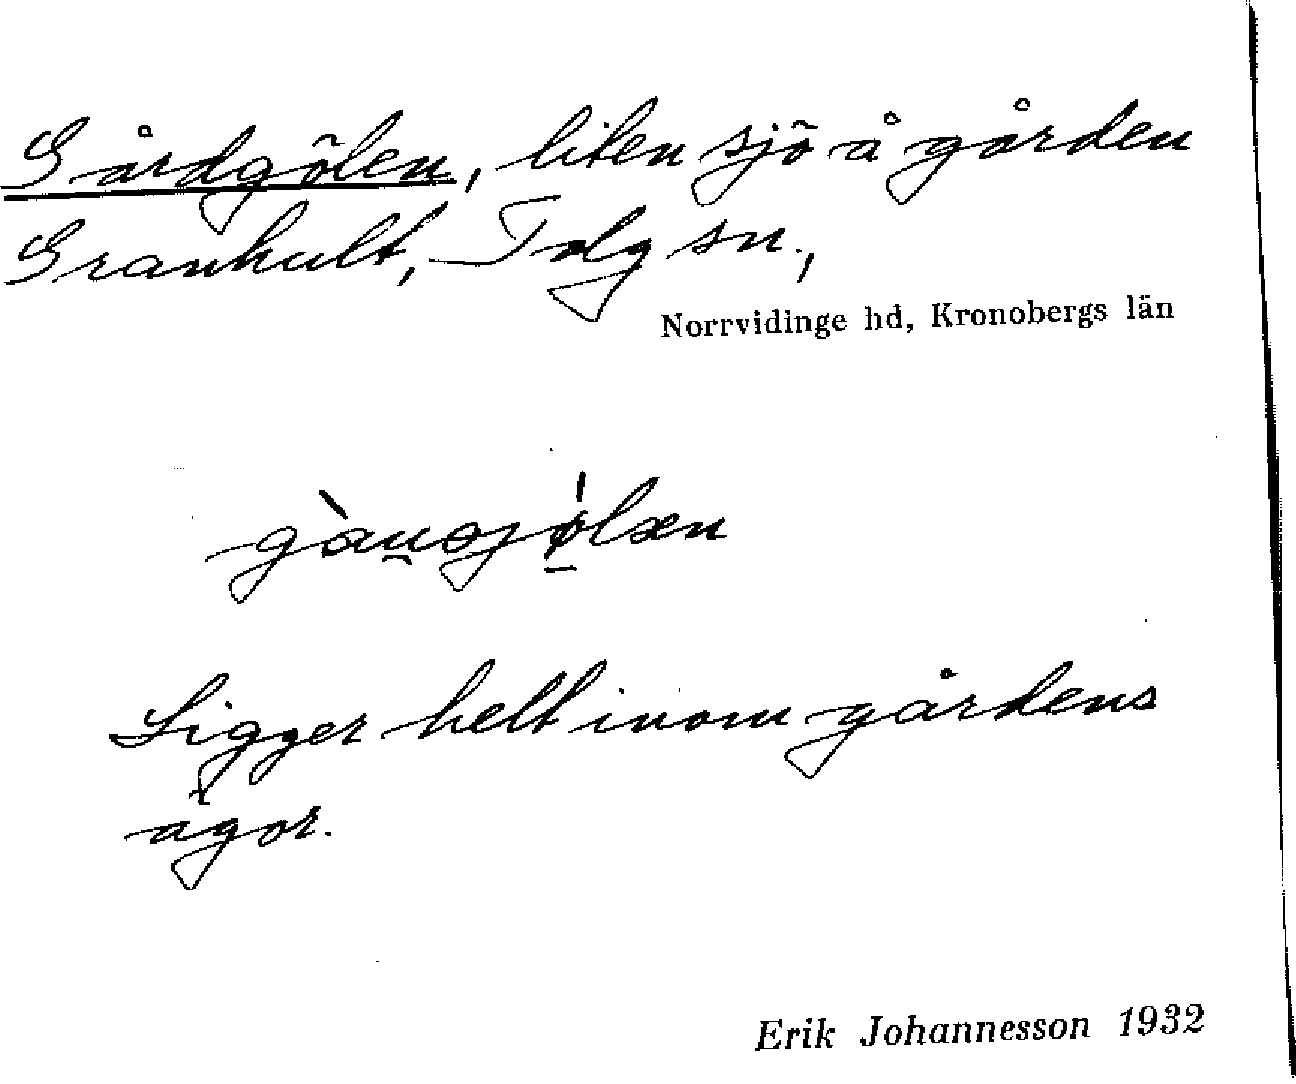 Gårdgölen, liten sjö å gården
Granhult, Tolg sn.,
Norrvidinge hd, Kronobergs län
Ligger helt inom gårdens
ägor.
Erik Johannesson 1932